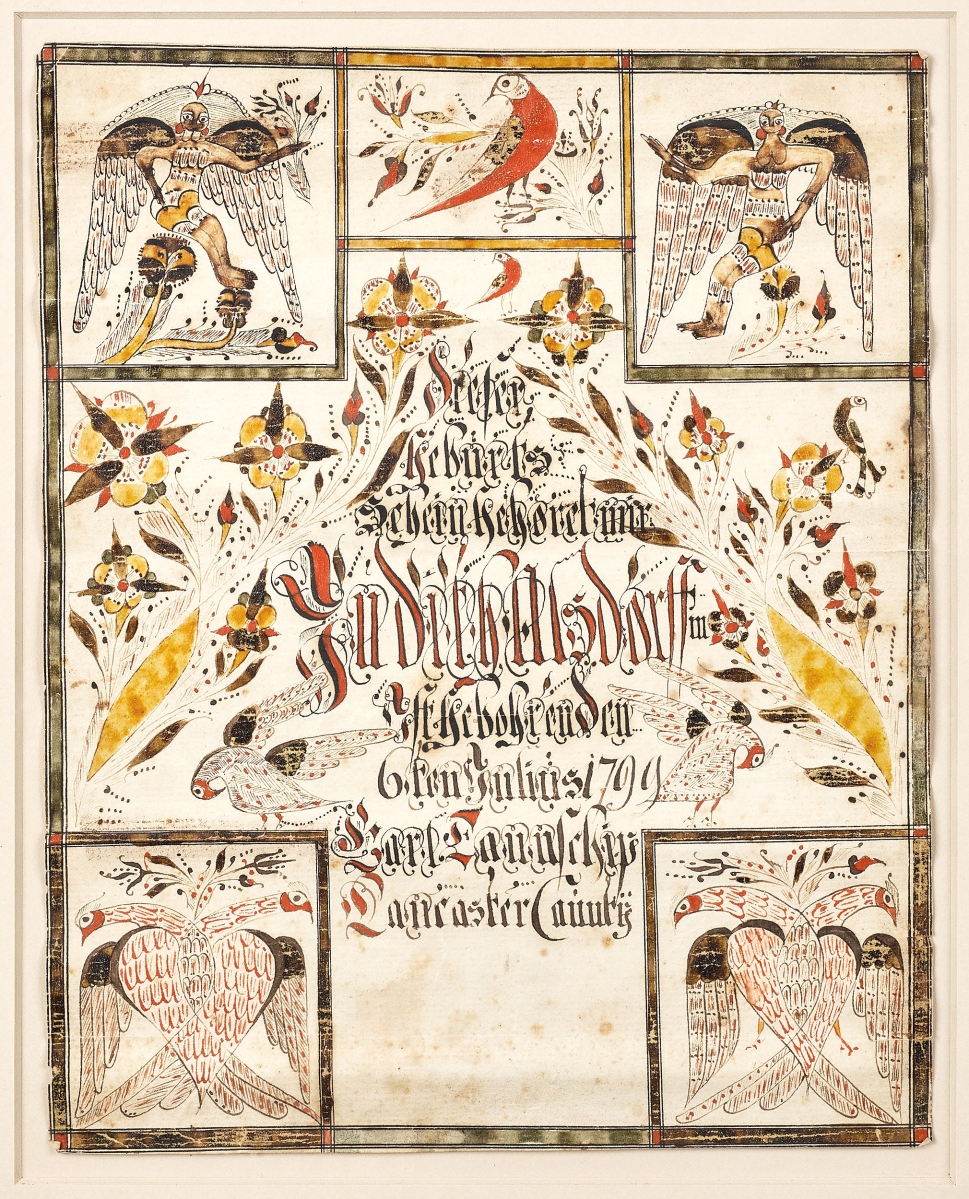 Dieser
Geburts
Schein Gehöret mir
Judith Alsdorff in
Ist Gebohren den
6ten Julius 1799
Earl Taunschip
Lancaster Caunty